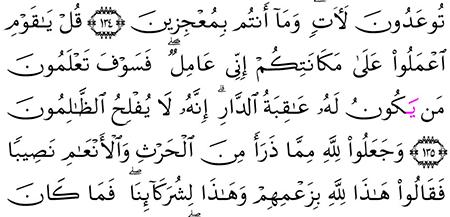 تُوعَدُونَ لَأٓتٖۖ وَمَآ أَنتُم بِمُعْجِزِينَ ﴿١٣٤﴾ قُلْ يَٰقَوْمِ
ٱعْمَلُواْ عَلَىٰ مَكَانَتِكُمْ إِنِّي عَامِلٞۖ فَسَوْفَ تَعْلَمُونَ
مَن يَكُونُ لَهُۥ عَٰقِبَةُ ٱلدَّارِۚ إِنَّهُۥ لَا يُفْلِحُ ٱلظَّٰلِمُونَ
﴿١٣٥﴾ وَجَعَلُواْ لِلَّهِ مِمَّا ذَرَأَ مِنَ ٱلْحَرْثِ وَٱلْأَنْعَٰمِ نَصِيبٗا
فَقَالُواْ هَٰذَا لِلَّهِ بِزَعْمِهِمْ وَهَٰذَا لِشُرَكَآئِنَاۖ فَمَا كَانَ